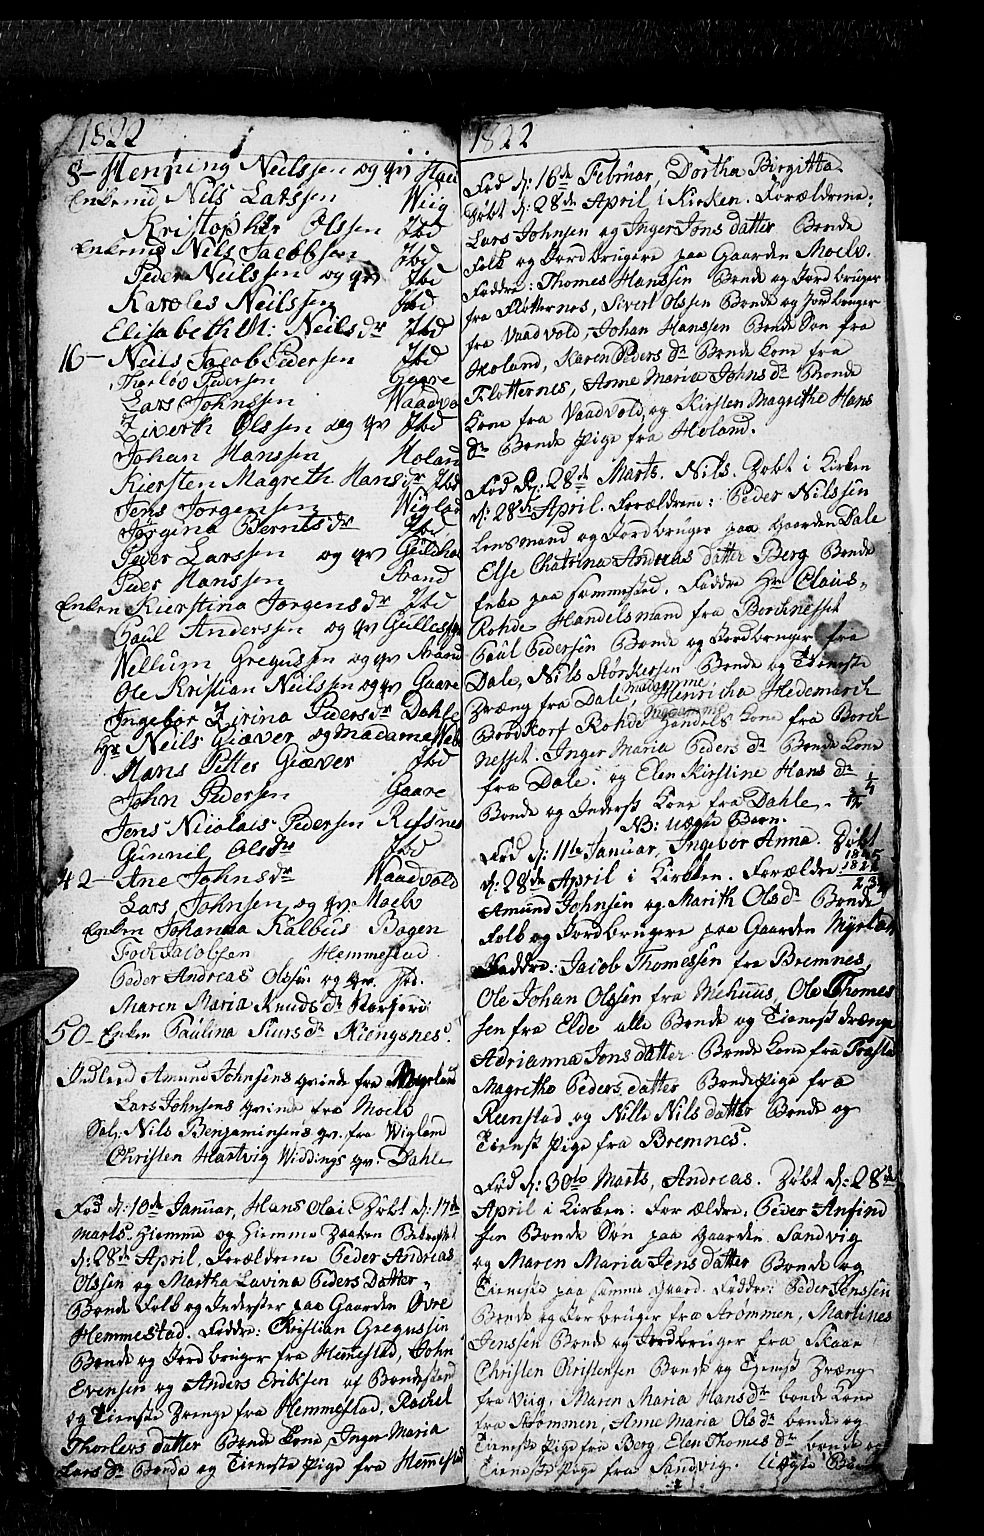 1822
8- Henning Neilssen og qv Haei
Enkemd Nils Larssen Wiig
Kristopher Olssen Ibd
Enkemd Nils Jacobssen Ibd
Peder Neilssen og qv Ibd
Karoles Neilssen Ibd
Elisabeth M: Neilsdr Ibd
16- Neils Jacob Pedersen Ibd
Thorlöv Pedersen Gaare
Lars Johnssen Waadvo
Zivert Olssen og qv Ibd
Johan Hanssen Holand
Kiersten Magreth Hansdr Ibd
Jens Jorgensen Wiglad
Jörgina Berntsdr Ibd
Peder Larssen og qv Guldha
Peer Hanssen Strand
Enken Kierstina Jorgensdr Ibd
Paul Anderssen og qv Gulles
Nellum Gregussen og qv Strand
Ole Kristian Neilssen og qv Gaare
Ingebor Zirina Pedersdr Dahle
Hr Neils Giæver og madame
Hans Petter Giæver Ibd
John Pedersen Gaare
Jens Nicolais Pedersen Refsnes
Gunnil Olsdr Ibd
42- Ane Johnsdr Waadvold
Lars Johnsen og qv. Moelv
Enken Johanna Kalbus Bogen
Fock Jacobsen Hemmestad
Peder Andreas Olssen og qv. Ibd.
Maren Maria Knudsdr Storjord
50- Enken Paulina Siursdr Kiengsnes.
Indlerd Amund Johnsens qvinde fra Myrland
Lars Johnsens qvinde fra Moelv
Sal: Nils Benjaminsens qv. fra Wigland
Christen Hartvig Widdings qv. Dahle
Fød d: 10de Januar, Hans Olai Døbt d: 17de
Marts. Hiemme og Hiemme Daaben Bekræftet
d: 28de April, Forældrene Peder Andreas
Olssen og Martha Lavina Peders Datter,
Bonde Folk og Inderster paa Gaarden Øvre
Hemmestad. Faddre: Christian Gregussen
Bonde og Jord bruger fra Hemestad, John
Evensen og Anders Eriksen af Bondestand
og Tieneste Drenge fra Hemmestad, Rachel
Thorlers datter Bonde Kone Inger Maria
Larsdr Bonde og Tieneste Pige fra Hemestad
1822
Fød d: 16de Februar, Dortha Birgitta
Døbt d: 28de April i Kirken. Forældrene:
Lars Johnsen og Inger Jons datter Bonde
Folk og Jordbrugere paa Gaarden Moelv.
Faddre: Thomes Hanssen Bonde og Jord bruger
fra Flotternes, Sivert Olssen Bonde og Jordbruger
fra Vaadvold, Johan Hanssen Bonde Søn fra
Holand, Karen Peders dr Bonde Kone fra
Flotternes, Anne Maria Johns dr Bonde
Kone fra Vaadvold, og Kirsten Magrethe Hans
dr Bonde Pige fra Holand.
Fød d: 28de Marts. Nils. Døbt i Kirken
d: 28de April. Forældrene: Peder Nilssen
Lensmand og Jordbruger paa Gaarden Dale
Else Chatrina Andreas datter Berg Bonde
paa sammestæd. Faddre Hr Claus
Rohde Handelsmand fra Borchnesset
Paul Pedersen Bonde og Jordbruger fra
Dale, Nils Størkersen Bonde og Tieneste
Dræng fra Dale, Madamme Henricha Hedemarch
Brodkorf Rohde Handels Kone fra Borch
nesset. Inger Maria Peders dr Bonde Kone
fra Dale. og Elen Kirstine Hans dr
Bonde og Inderst Kone fra Dahle.
NB: Uægte Barn.
Fød d: 11te Januar, Ingebor Anna. Døbt
1845
1822
23
d: 28de April i Kirken. Forældre
Amund Johnsen og Marith Olsdr Bonde
Folk og Jordbrugere paa Gaarden Myrland
Faddre: Jacob Thomessen fra Bremnes,
Ole Johan Olssen fra Mehuus, Ole Thomes
sen fra Elde alle Bonde og Tienest drænge
Adrianna Jons datter Bonde Kone fra
Magretha Peders datter Bonde Pige fra
Reenstad og Nille Nils datter Bonde og
Tienest Pige fra Bremnes.
Fød d: 30te Marts, Andreas. Døbt d: 28de
April i Kirken: Forældre: Peder Anfind
sen Bonde Søn paa Gaarden Sandvig
og Maren Maria Jens datter Bonde og
Tieneste paa samme Gaard. Faddre: Peder Jenssen
Bonde og Jor bruger fra Strommen, Martines
Jenssen Bonde og Jordbruger fra Skaar
Christen Christensen Bonde og Tienest Dræng
fra Viig, Maren Maria Hansdr bonde Kone
fra Strømmen, Anne Maria Olsdr bonde og
Tieneste Pige fra Berg, Elen Thomes dr bonde og
Tieneste Pige fra Sandvig. Uægte Barn